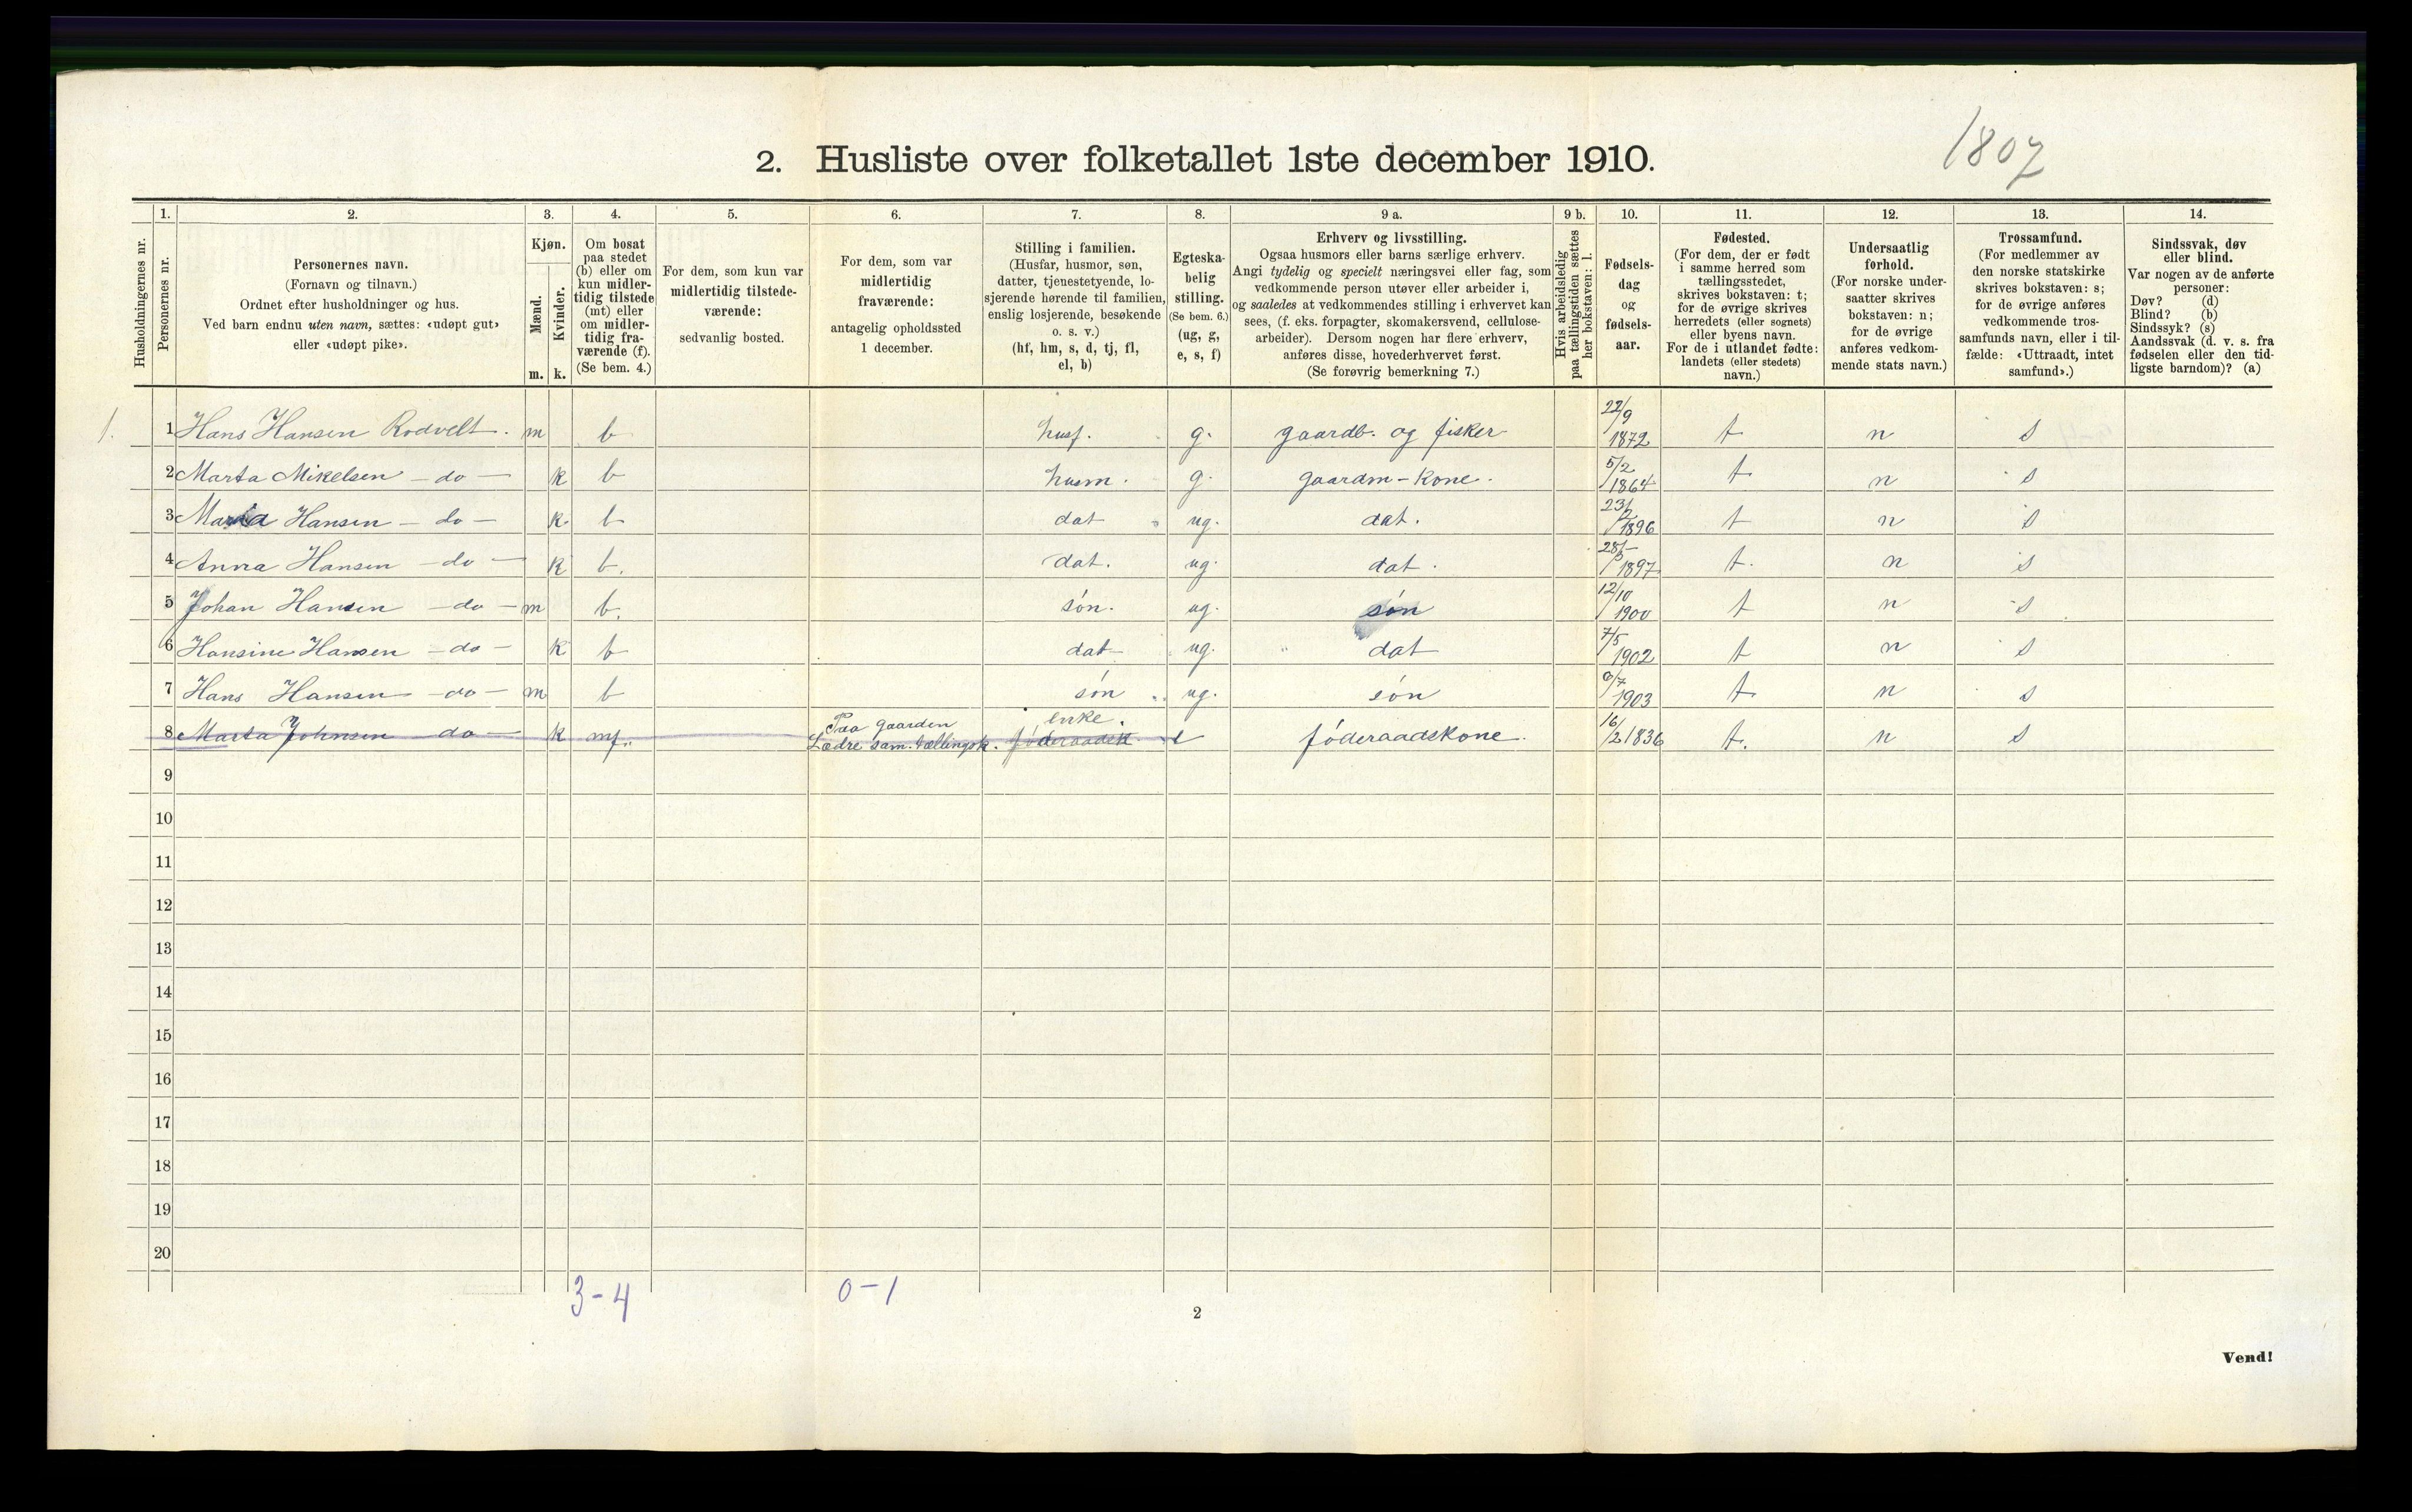 1807
2. Husliste over folketallet 1ste december 1910.
Husholdningernes nr.
1.
Personernes nr.
2.
Personernes navn.
(Fornavn og tilnavn.)
Ordnet efter husholdninger og hus.
Ved barn endnu uten navn, sættes: «udøpt gut»
eller «udøpt pike».
3.
Kjøn.
Mænd.
Kvinder.
m. k.
4.
Om bosat
paa stedet
(b) eller om
kun midler-
tidig tilstede
(mt) eller
om midler-
tidig fra-
værende (f).
(Se bem. 4.)
5.
For dem, som kun var
midlertidig tilstede-
værende:
sedvanlig bosted.
6.
For dem, som var
midlertidig
fraværende:
antagelig opholdssted
1 december.
7.
Stilling i familien.
(Husfar, husmor, søn,
datter, tjenestetyende, lo-
sjerende hørende til familien,
enslig losjerende, besøkende
o. s. v.)
(hf, hm, s, d, tj, fl,
el, b)
8.
Egteska-
belig
stilling.
(Se bem. 6.)
(ug, g,
e, s, f)
9 a.
Erhverv og livsstilling.
Ogsaa husmors eller barns særlige erhverv.
Angi tydelig og specielt næringsvei eller fag, som
vedkommende person utøver eller arbeider i,
og saaledes at vedkommendes stilling i erhvervet kan
sees, (f. eks. forpagter, skomakersvend, cellulose-
arbeider). Dersom nogen har flere erhverv,
anføres disse, hovederhvervet først.
(Se forøvrig bemerkning 7.)
9 b.
Hvis arbeidsledig
paa tællingstiden sættes
her bokstaven: l.
10.
Fødsels-
dag
og
fødsels-
aar.
11.
Fødested.
(For dem, der er født
i samme herred som
tællingsstedet,
skrives bokstaven: t;
for de øvrige skrives
herredets (eller sognets)
eller byens navn.
For de i utlandet fødte:
landets (eller stedets)
navn.)
12.
Undersaatlig
forhold.
(For norske under-
saatter skrives
bokstaven: n;
for de øvrige
anføres vedkom-
mende stats navn.)
13.
Trossamfund.
(For medlemmer av
den norske statskirke
skrives bokstaven: s;
for de øvrige anføres
vedkommende tros-
samfunds navn, eller i til-
fælde: «Uttraadt, intet
samfund».)
14.
Sindssvak, døv
eller blind.
Var nogen av de anførte
personer:
Døv? (d)
Blind? (b)
Sindssyk? (s)
Aandssvak (d. v. s. fra
fødselen eller den tid-
ligste barndom)? (a)
1. 1 Hans Hansen Rodvelt. m b husf. g. gaardb. og fisker 22/9 1872 t n s
2 Marta Mikelsen - do - k b husm. g. gaardm-kone. 5/2 1864 t n s
3 Maria Hansen - do - k b dat ug. dat. 23/2 1896 t n s
4 Anna Hansen - do - k b. dat. ug. dat. 1897 t. n s
5 Johan Hansen - do - m b. són. ug. són 12/10 1900 t n s
6 Hansine Hansen - do - k b dat ug. dat 7/5 1902 t n s
7 Hans Hansen - do - m b són ug. són 1903 t n s
8 Marta Johnsen - do - k mf. Paa gaarden Lædre sam. tællingsk. enke. fóderaadsk e fóderaadskone. 16/2 1836 t. n s
9
10
11
12
13
14
15
16
17
18
19
20
3-4 0-1
2
Vend!